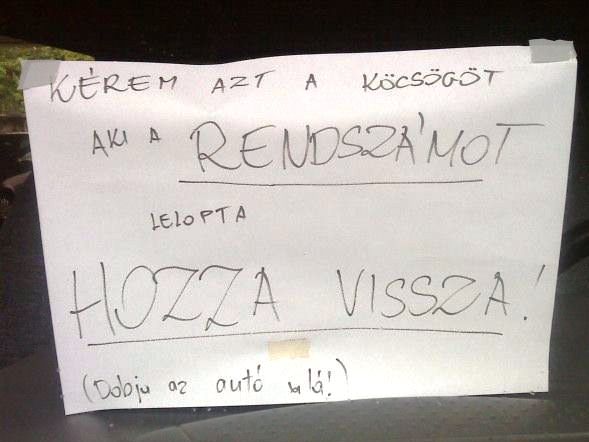 KÉREM AZT A KÖCSÖGÖT
AKI A RENDSZÁMOT
LELOPTA
HOZZA VISSZA!
(Dobja az autó alá!)